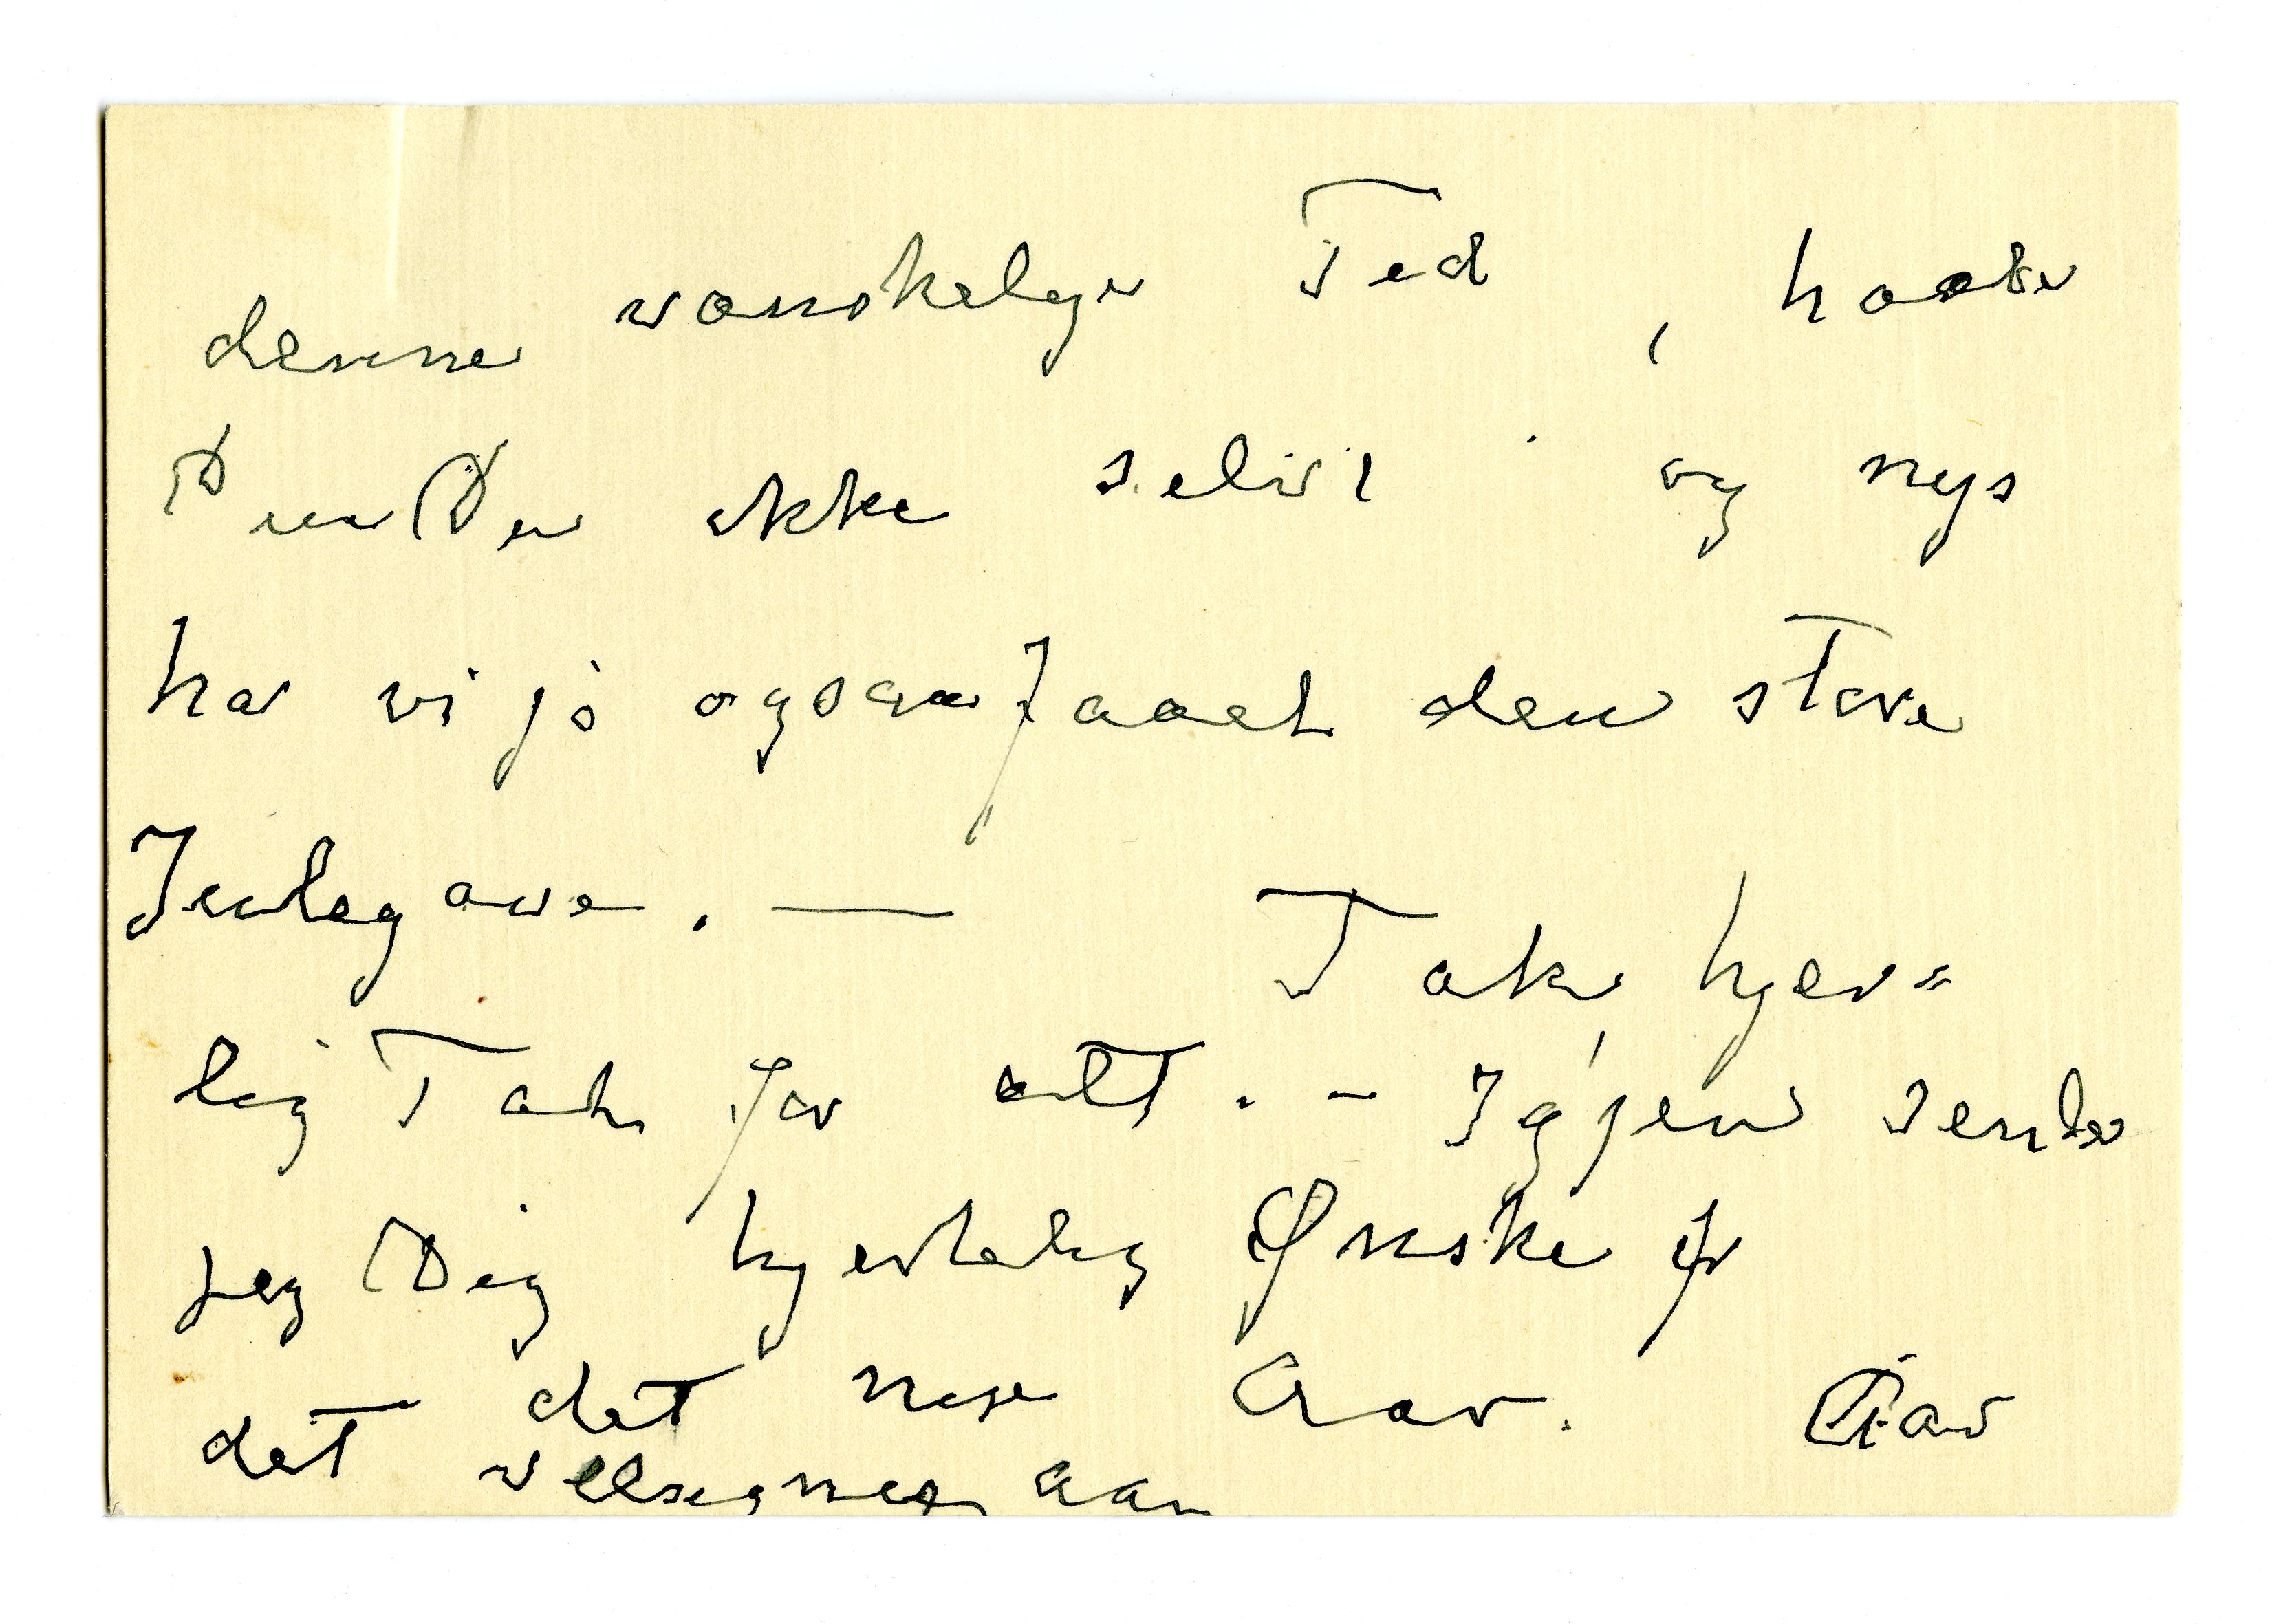 denne vanskelige Tid , haaber
Du er ikke selv i og nys
har vi jo ogsaa faaet den store
Julegave . — Tak, hjer=
lig Tak for alt . - Igjen sender
jeg Dig hjertelig Ønske for
det det nye Aar .
det velsignes aar